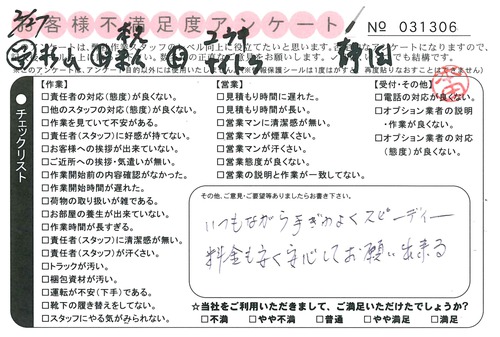 お客様不満足度アンケート
№ 031306
チェックリスト
【作業】
□責任者の対応(態度)が良くない。
□他のスタッフの対応(態度)が良くない。
□作業を見ていて不安がある。
□責任者(スタッフ)に好感が持てない。
□お客様への挨拶が出来ていない。
□ご近所への挨拶・気遣いが無い。
□作業開始前の内容確認がなかった。
□作業開始時間が遅れた。
□荷物の取り扱いが雑である。
□お部屋の養生が出来ていない。
□作業時間が長すぎる。
□責任者(スタッフ)に清潔感が無い。
□責任者(スタッフ)が汗くさい。
□トラックが汚い。
□梱包資材が汚い。
□運転が不安(下手)である。
□靴下の履き替えをしてない。
□スタッフにやる気がみられない。
【営業】
□見積もり時間に遅れた。
□見積もり時間が長い。
□営業マンに清潔感が無い。
□営業マンが煙草くさい。
□営業マンが汗くさい。
□営業態度が良くない。
□営業の説明と作業が一致してない。
【受付・その他】
□電話の対応が良くない。
□オプション業者の説明
・作業が良くない。
□オプション業者の対応
(態度)が良くない。
その他、ご意見・ご要望等ありましたらお書き下さい。
いつもながら手ぎわよくスピーディー
料金も安く安心してお願い出来る
☆当社をご利用いただきまして、ご満足いただけたでしょうか？
□不満 □やや不満 □普通 □やや満足 □満足